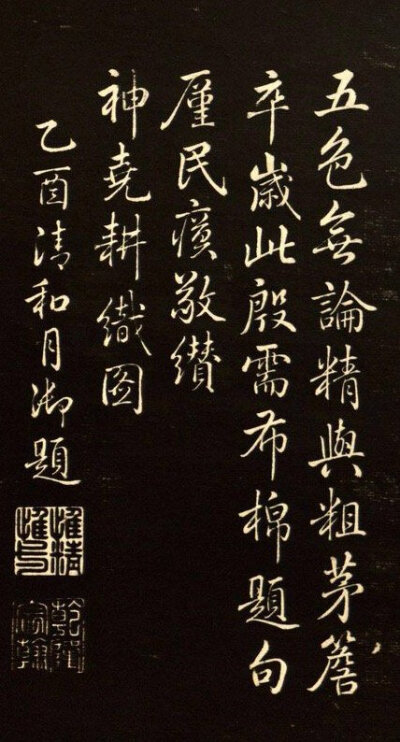 五色無論精與粗茅簷
卒歲此殷需布棉題句
厪民瘼敬纘
神堯耕織圖
乙酉清和月御題
惟精惟一
乾隆宸翰